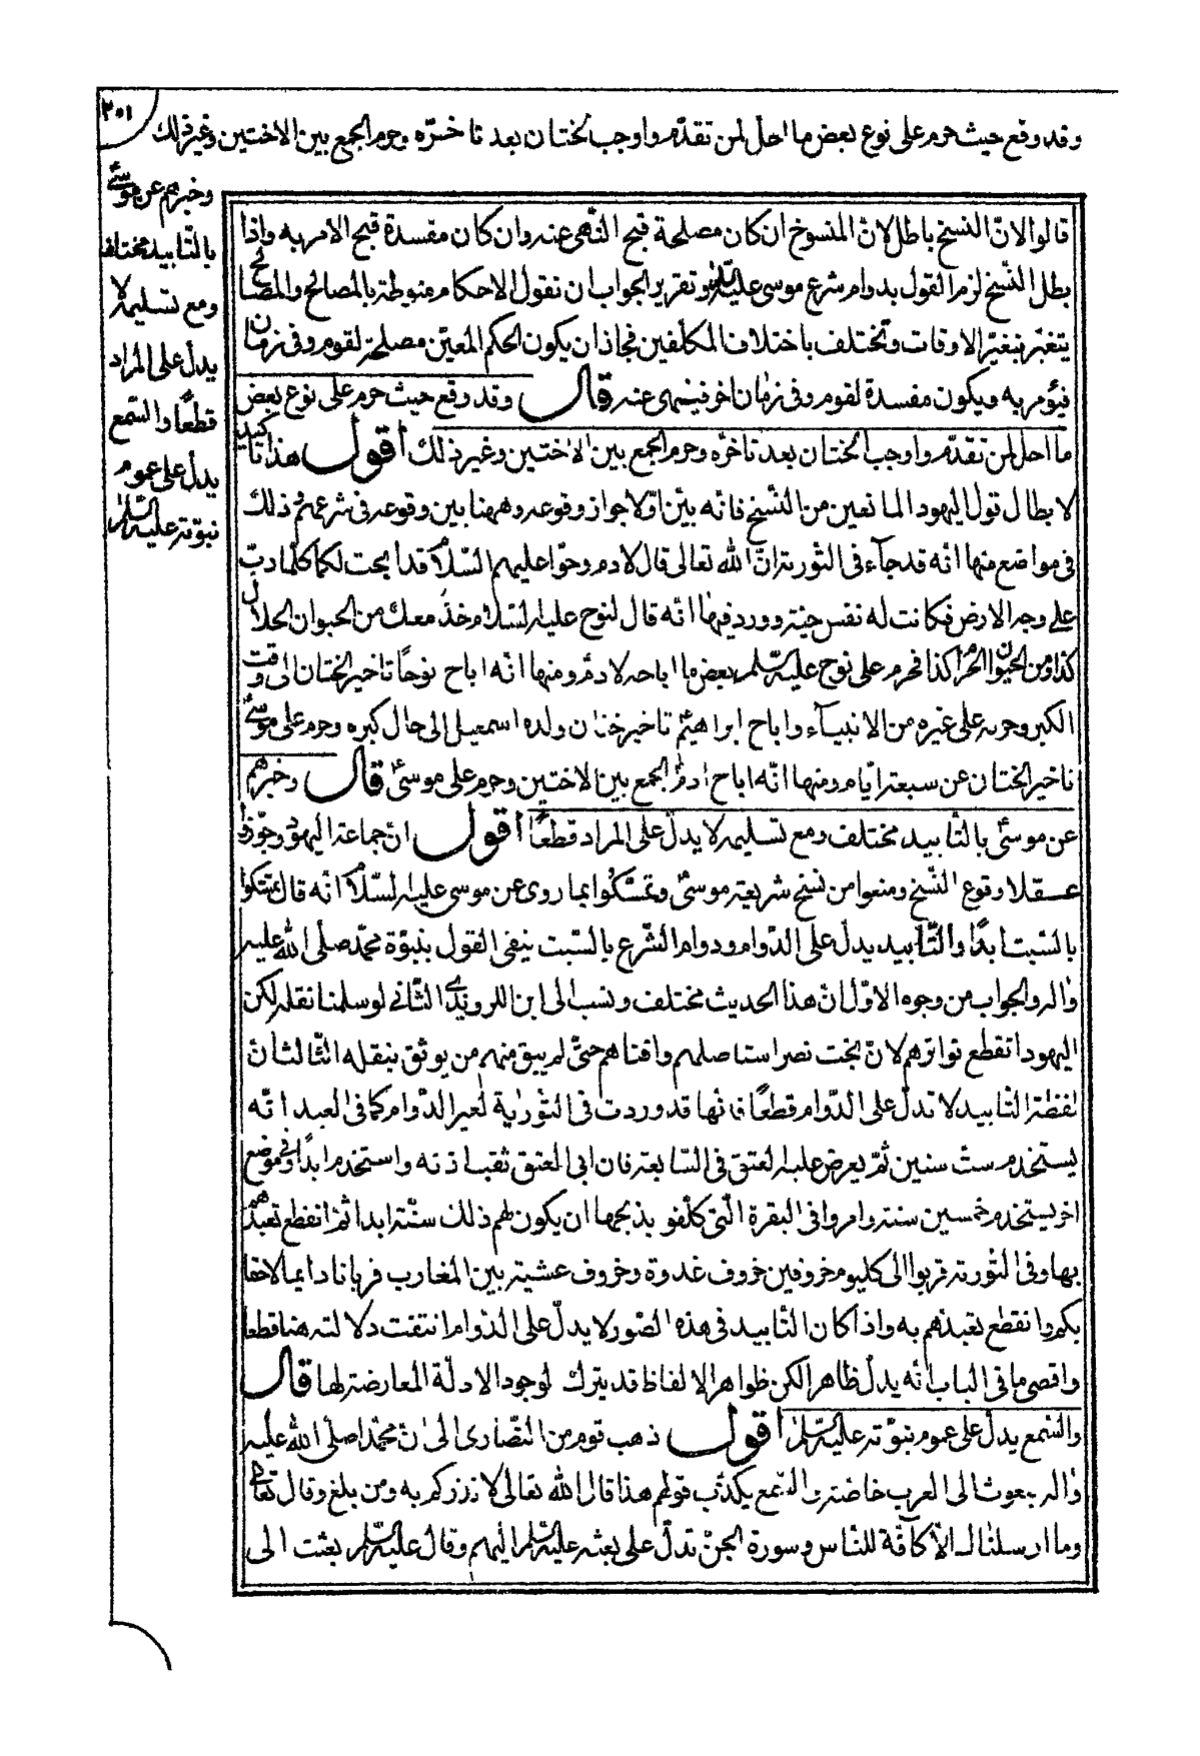 ٢٠١
وقد وقع حيث حرم على نوح بعض ما احل لمن تقدّم واوجب الختان بعد تاخّره وحرم الجمع بين الاختين وغير ذلك
وخبرهم عن موسىٰ
بالتّابيد مختلف
ومع تسليمه لا
يدلّ على المراد
قطعًا والسّمع
يدلّ على عموم
نبوّته عليه السّلم
قالوا لانّ النسخ باطل لانّ المنسوخ ان كان مصلحة قبح النّهى عنه وان كان مفسدة قبح الامر به واذا
بطل النّسخ لزم القول بدوام شرع موسى عليه السّلم وتقرير الجواب ان نقول الاحكام منوطة بالمصالح والمصالح
يتغيّر بتغيّر الاوقات وتختلف باختلاف المكلّفين فجاز ان يكون الحكم المعيّن مصلحة لقوم وفى زمان
فيؤمر به ويكون مفسدة لقوم وفى زمان اخر فينهى عنه قال وقد وقع حيث حرم على نوع بعض
ما احل لمن تقدم واوجب الختان بعد تاخّره وحرم الجمع بين الاختين وغير ذلك اقول هذا تاكيد
لابطال قول اليهود المانعين من النّسخ فانّه بيّن اوّلا جواز وقوعه وههنا بين وقوعه فى شرعهم وذلك
فى مواضع منها انّه قد جآء فى التّورية انّ الله تعالى قال لادم وحوّا عليهم السّلام قد ابحت لكما كلّما دبّ
على وجه الارض فكانت له نفس حيّة وورد فيها انّه قال لنوح عليه السّلام خذ معك من الحيوان الحلال
كذا ومن الحيوان الحرام كذا فحرم على نوح عليه السّلم بعض ما اباحه لادم ومنها انّه اباح نوحًا تاخير الختان الى وقت
الكبر وحرمه على غيره من الانبيآء واباح ابراهيم تاخير ختان ولده اسمعيل الى حال كبره وحرم على موسىٰ
تاخير الختان عن سبعة ايّام ومنها انّه اباح ادم الجمع بين الاختين وحرم على موسىٰ قال وخبرهم
عن موسىٰ بالتّابيد مختلف ومع تسليمه لا يدلّ على المراد قطعًا اقول انّ جماعة اليهود جوّزوا
عقلا وقوع النّسخ ومنعوا من نسخ شريعة موسىٰ وتمسّكوا بما روى عن موسى عليه السّلام انّه قال تمسّكوا
بالسّبت ابدًا والتّابيد يدلّ على الدّوام ودوام الشّرع بالسّبت ينفى القول بنبوّة محمّد صلّى الله عليه
واله والجواب من وجوه الاوّل انّ هذا الحديث مختلف ونسب الى ابن الراوندى الثّانى لو سلمنا نقله لكن
اليهود انقطع تواترهم لانّ بخت نصر استاصلهم وافناهم حتىّ لم يبق منهم من يوثق بنقله الثّالث انّ
لفظة التّابيد لا تدلّ على الدّوام قطعًا فانّها قد وردت فى التّورٰية لغير الدّوام كما فى العبد انّه
يستخدم ستّ سنين ثمّ يعرض عليه العتق فى السّابعة فان ابى العتق ثقب اذنه واستخدم ابدًا وفى موضع
اخر يستخدم خمسين سنة وامروا فى البقرة الّتى كلّفو بذبحها ان يكون لهم ذلك سنّة ابدا ثمّ انقطع تعبّدهم
بها وفى التّورية قربوا الى كليوم خروفين خروف غدوة وخروف عشية بين المغارب قربانا دايما لاحقا
بكم وانقطع تعبدهم به واذا كان التّابيد فى هذه الصّور لا يدلّ على الدّوام انتفت دلالته هنا قطعا
واقصى ما فى الباب انّه يدلّ ظاهر الكن ظواهر الالفاظ قد يترك لوجود الادلّة المعارضة لها قال
والسّمع يدلّ على عموم نبوّته عليه السّلم اقول ذهب قوم من النّصارى الى انّ محمّدا صلّى الله عليه
واله مبعوث الى العرب خاصّة والسّمع يكذّب قولهم هذا قال الله تعالى لانذركم به ومن بلغ وقال تعالى
وما ارسلناك الاّ كافّة للنّاس وسورة الجنّ تدلّ على بعثه عليه السّلم اليهم وقال عليه السّلم بعثت الى